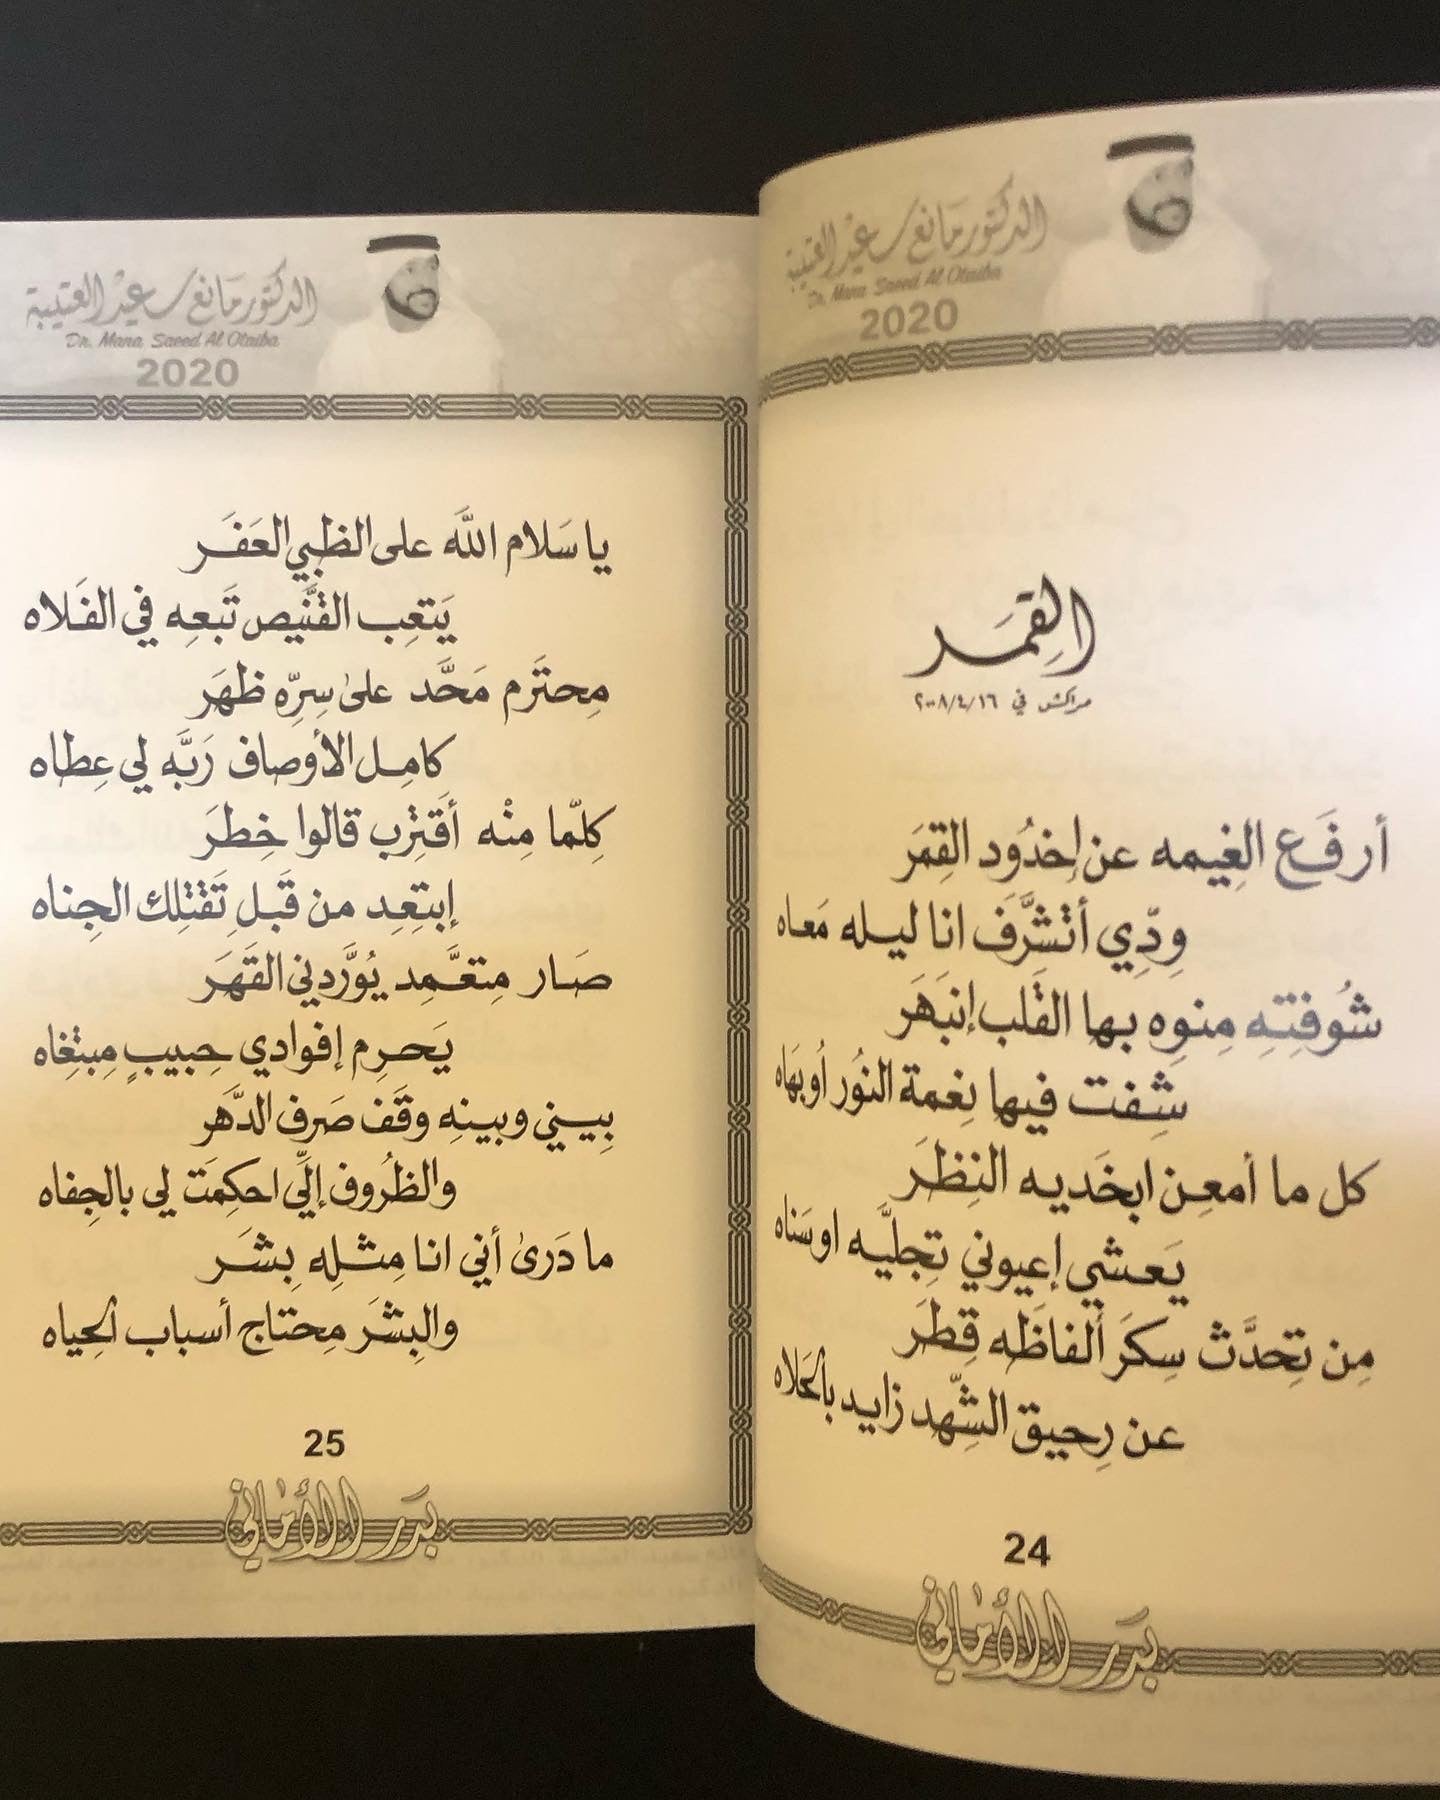 الدكتور مانع سعيد العتيبة
Dr. Mana Saeed Al Otaiba
2020
القِمَر
مراكش في ٢٠٠٨/٤/١٦
أرفَع الغِيمه عن اِخدُود القِمَر
وِدِّي أتشَرَّف انا ليله مَعاه
شُوفِتِهِ مِنوِه بها القَلب إنبَهَر
شِفت فيها نِعمة النُور أوبهَاه
كل ما أمعِن ابخَديه النِظَر
يَعشي إعيوني تِجليَّه اوسَناه
مِن تِحدَّث سِكرَ ألفاظَه قِطَر
عن رِحيق الشِّهد زايد بالحَلاه
24
بَدر الأماني
الدكتور مانع سعيد العتيبة
Dr. Mana Saeed Al Otaiba
2020
يا سَلام اللَّه على الظبي العَفَر
يَتعِب القَنَّيص تَبعِه في الفَلاه
مِحتَرم مَحَّد على سِرِّه ظهَر
كامِل الأوصاف رَبَّه لي عِطاه
كِلّما مِنْه أقَتِرب قالوا خِطَر
إبتِعِد من قَبلِ تَقتلِك الجِناه
صَار مِتعَمِّد يُوَّردِني القَهَر
يَحرِم إفوادي حِبيبٍ مِبتِغاه
بِيني وبينِه وقَف صَرف الدَّهَر
والظرُوف إلِّي احكِمَت لي بالجِفاه
ما دَرىٰ أني انا مِثلِه بِشَر
والبِشَر مِحتاج أسباب الحِياه
25
بَدر الأماني